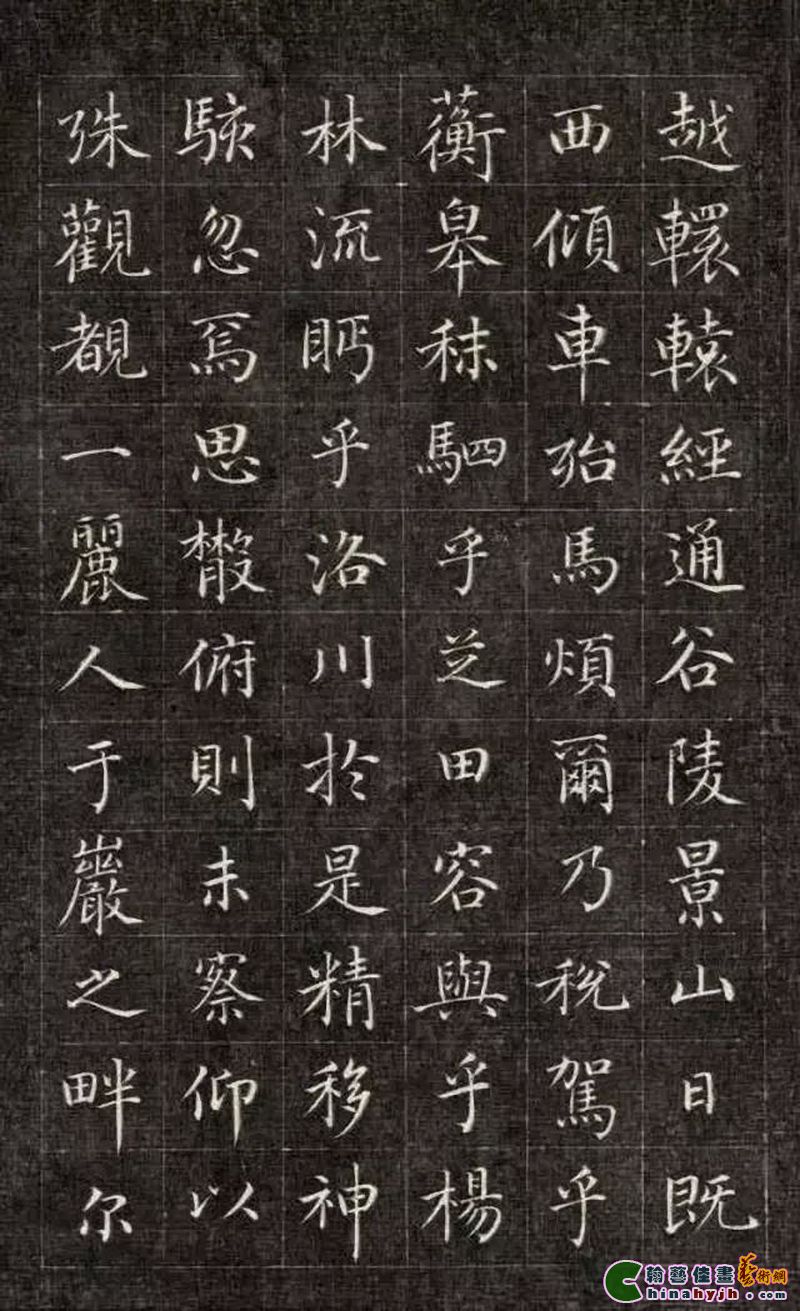 越轘轅經通谷陵景山日既
西傾車殆馬煩爾乃税駕乎
蘅皋秣駟乎芝田容與乎楊
林流眄乎洛川於是精移神
駭忽焉思散俯則未察仰以
殊觀覩一麗人于巖之畔尔
翰藝佳畫藝術網
Chinahyjh.com